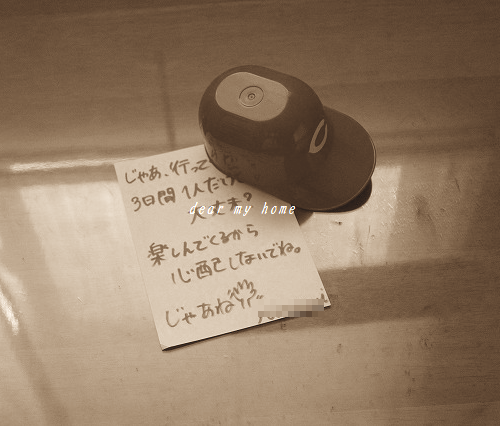 じゃあ、行って
3日間 1人だけ
大丈夫?
dear my home
楽しんでくるから
心配しないでね。
じゃあね